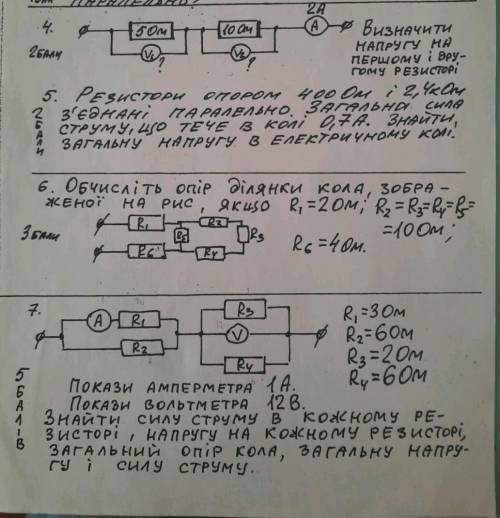 ПАРАЛЕЛЬНО?
4.
2 БАЛИ
5 Ом
10 Ом
2А
A
V₁
?
V₂
?
ВИЗНАЧИТИ
НАПРУГУ НА
ПЕРШОМУ І ДРУ-
ГОМУ РЕЗИСТОРІ
5. РЕЗИСТОРИ ОПОРОМ 400 Ом І 2,4 кОм
З'ЄДНАНІ ПАРАЛЕЛЬНО. ЗАГАЛЬНА СИЛА
СТРУМУ, ЩО ТЕЧЕ В КОЛІ 0,7А. ЗНАЙТИ,
ЗАГАЛЬНУ НАПРУГУ В ЕЛЕКТРИЧНОМУ КОЛІ.
2 БАЛИ
6. ОБЧИСЛІТЬ ОПІР ДІЛЯНКИ КОЛА, ЗОБРА-
ЖЕНОЇ НА РИС, ЯКЩО R₁=2 Ом; R₂=R₃=R₄=R₅=
=10 Ом;
R₆=4 Ом.
3 БАЛИ
R₁
R₂
R₅
R₃
R₆
R₄
7.
A
R₁
R₂
R₃
V
R₄
R₁=3 Ом
R₂=6 Ом
R₃=2 Ом
R₄=6 Ом
5 БАЛІВ
ПОКАЗИ АМПЕРМЕТРА 1А.
ПОКАЗИ ВОЛЬТМЕТРА 12В.
ЗНАЙТИ СИЛУ СТРУМУ В КОЖНОМУ РЕ-
ЗИСТОРІ, НАПРУГУ НА КОЖНОМУ РЕЗИСТОРІ,
ЗАГАЛЬНИЙ ОПІР КОЛА, ЗАГАЛЬНУ НАПРУ-
ГУ І СИЛУ СТРУМУ.